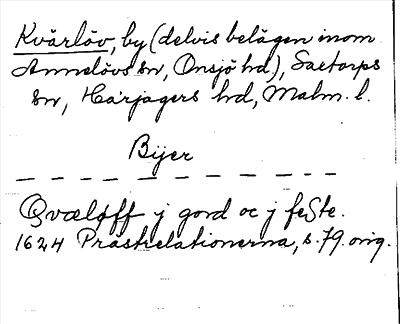 Kvärlöv, by (delvis belägen inom
Annelövs sn, Onsjö hd), Saxtorps
sn, Harjagers hd, Malm. l.
Bijer
Qvæløff j gord oc j feste.
1624 Prästrelationerna, s. 79. orig.